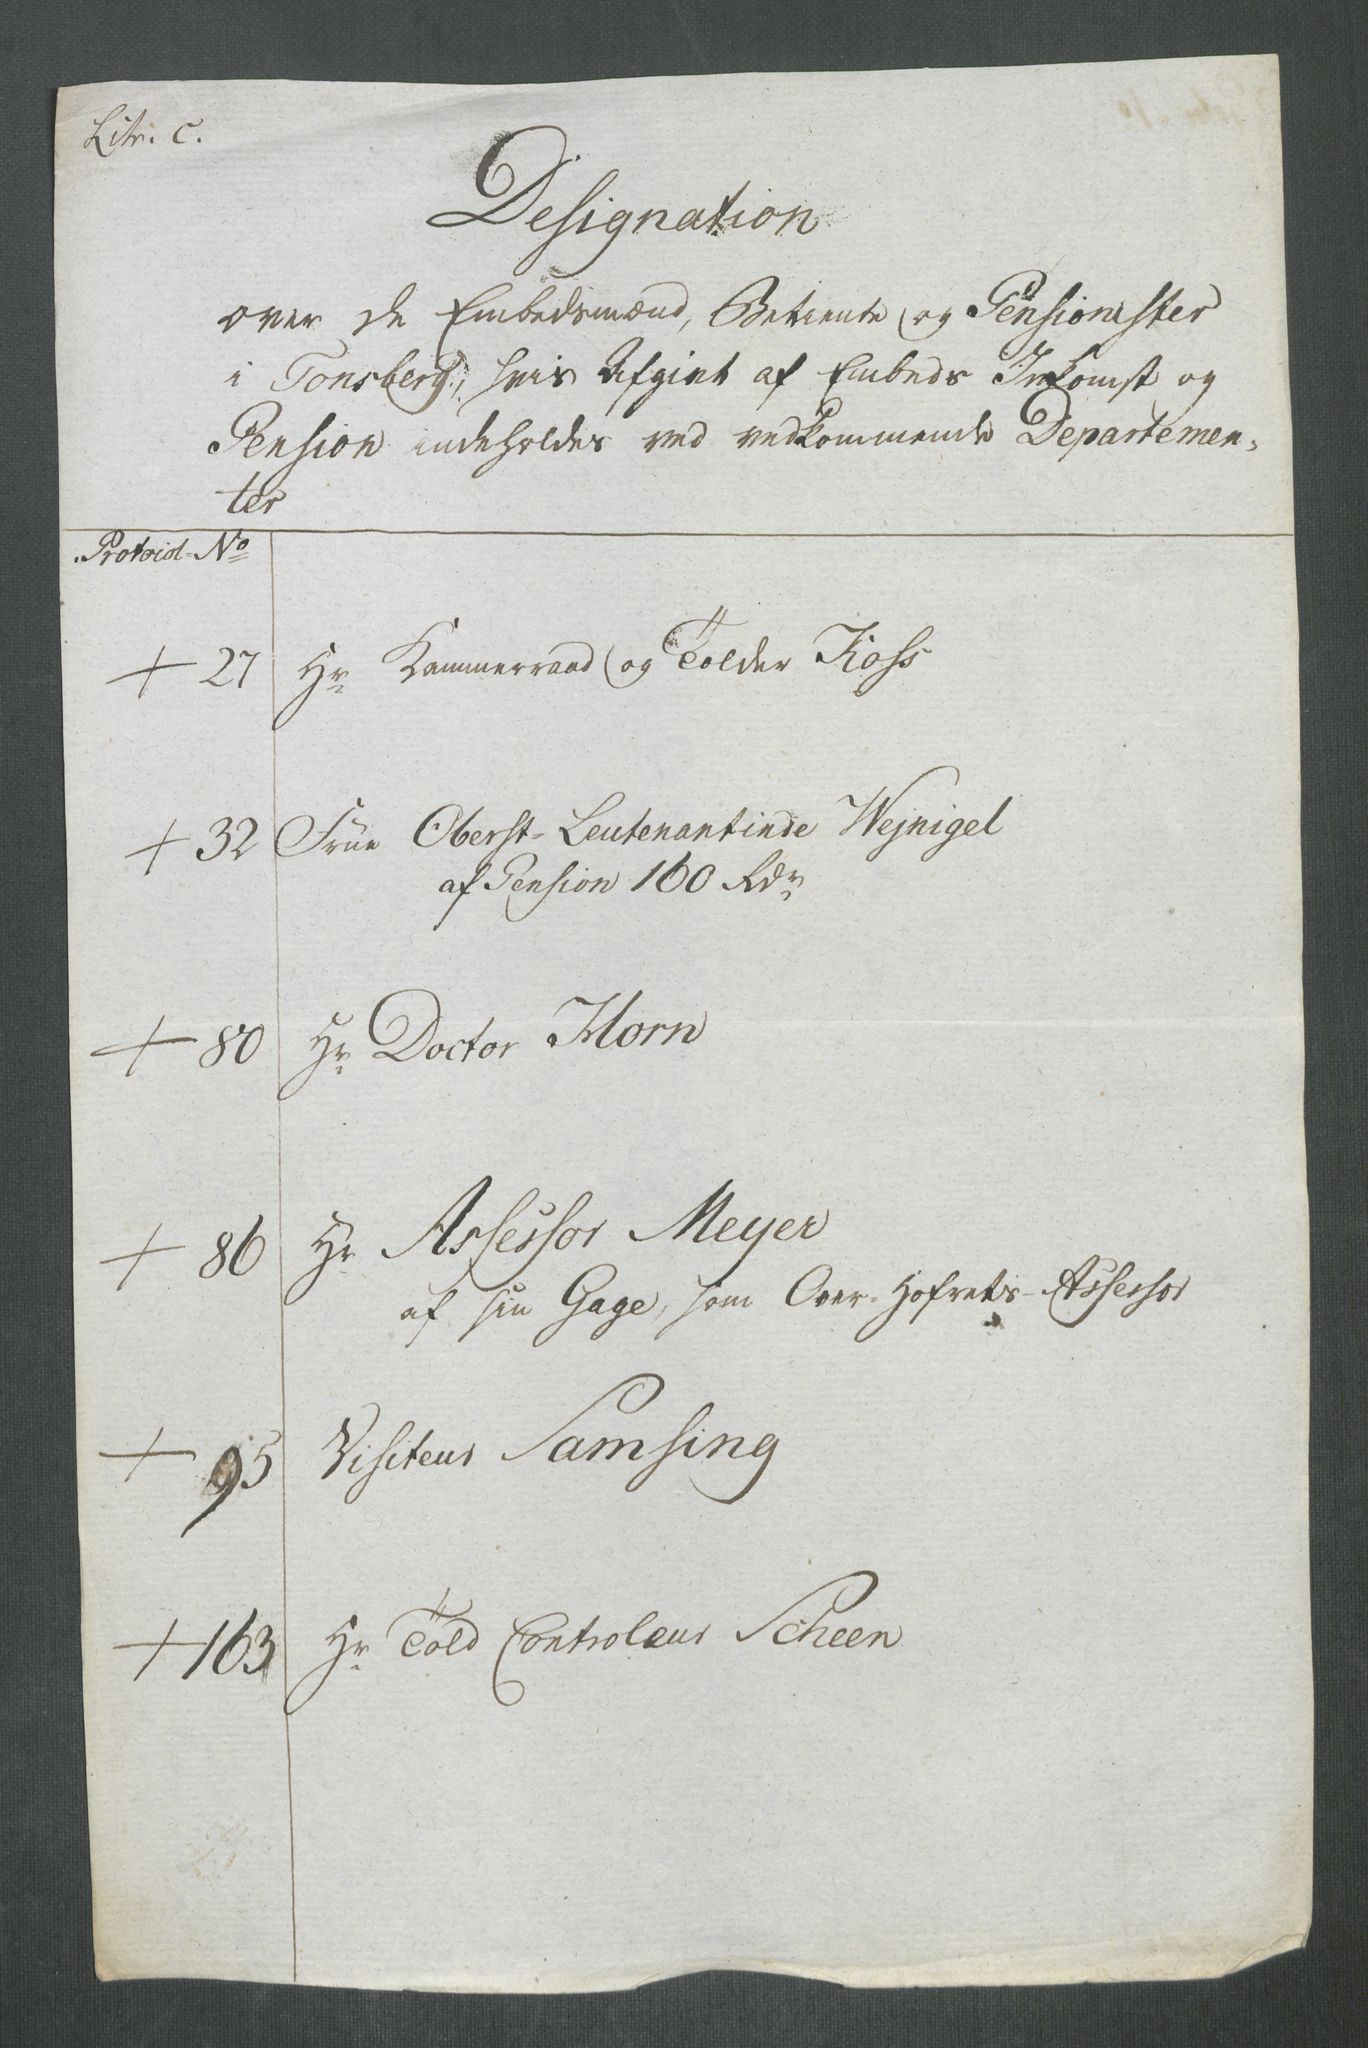 Litr. C.
Designation
over de Embedsmænd, Betiente og Pensionister
i Tonsberg, hvis Afgivt af Embeds Inkomst og
Pension indeholdes ved vedkommende Departemen-
ter
Protocol No
+ 27 Hr Kammerraad og Tolder Kioss
+ 32 Frue Oberst-Leutenantinde Wejnigel
af Pension 160 Rdr
+ 80 Hr Doctor Horn
+ 86 Hr Assessor Meyer
af sin Gage, som Over-Hofrets-Assessor
+ 95 Visiteur Samsing
+ 163 Hr Told Controleur Scheen